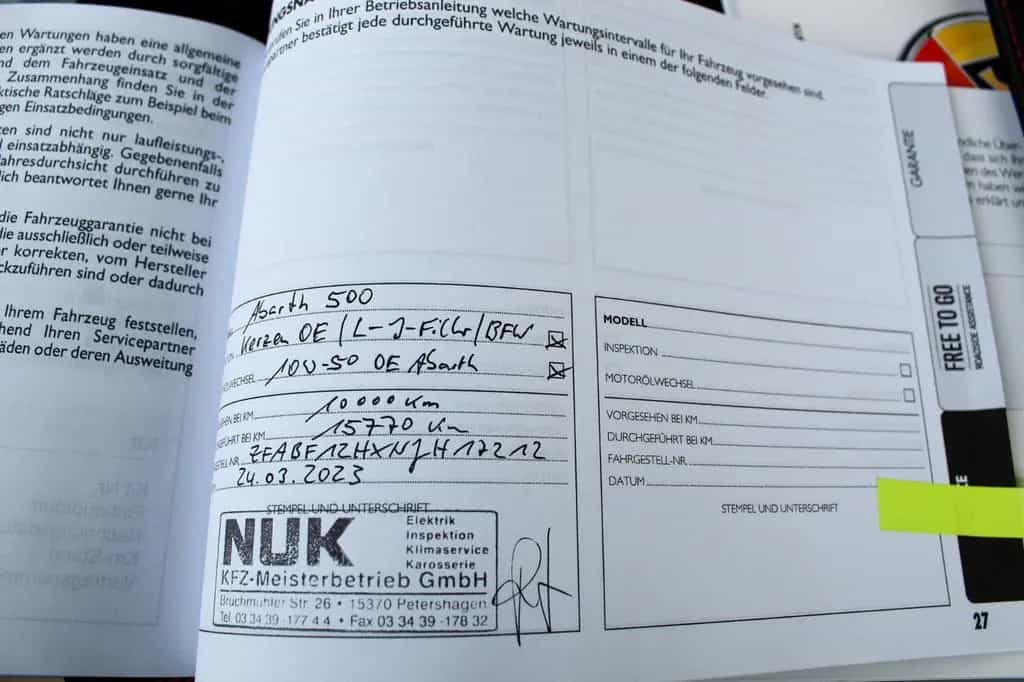 en Wartungen haben eine allgemeine
en ergänzt werden durch sorgfältige
nd dem Fahrzeugeinsatz und der
Zusammenhang finden Sie in der
ktische Ratschläge zum Beispiel beim
gen Einsatzbedingungen.
ten sind nicht nur laufleistungs-,
einsatzabhängig. Gegebenenfalls
Jahresdurchsicht durchführen zu
lich beantwortet Ihnen gerne Ihr
die Fahrzeuggarantie nicht bei
die ausschließlich oder teilweise
r korrekten, vom Hersteller
ckzuführen sind oder dadurch
Ihrem Fahrzeug feststellen,
hend Ihren Servicepartner
äden oder deren Ausweitung
Sie in Ihrer Betriebsanleitung welche Wartungsintervalle für Ihr Fahrzeug vorgesehen sind.
partner bestätigt jede durchgeführte Wartung jeweils in einem der folgenden Felder.
Abarth 500
Kerzen OE / L-I-Filter / BFW
WECHSEL 10W-50 OE Abarth
EHEN BEI KM 10000 Km
FÜHRT BEI KM 15770 Km
STELL-NR. ZFABF12HXNJH17212
24.03.2023
STEMPEL UND UNTERSCHRIFT
NUK
Elektrik
Inspektion
Klimaservice
Karosserie
KFZ-Meisterbetrieb GmbH
Bruchmühler Str. 26 • 15370 Petershagen
Tel. 03 34 39 -177 4 4 • Fax 03 34 39 -178 32
MODELL
INSPEKTION
MOTORÖLWECHSEL
VORGESEHEN BEI KM
DURCHGEFÜHRT BEI KM
FAHRGESTELL-NR.
DATUM
STEMPEL UND UNTERSCHRIFT
GARANTIE
FREE TO GO
ROADSIDE ASSISTANCE
27
ndliche Über-
dass sich Ih
en des Wer
n haben w
erklärt un